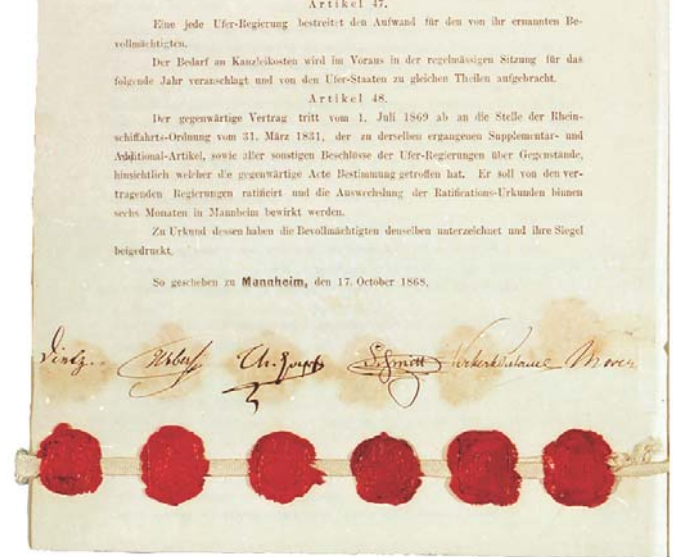 Artikel 47.
Eine jede Ufer-Regierung bestreitet den Aufwand für den von ihr ernannten Be-
vollmächtigten.
Der Bedarf an Kanzleikosten wird im Voraus in der regelmässigen Sitzung für das
folgende Jahr veranschlagt und von den Ufer-Staaten zu gleichen Theilen aufgebracht.
Artikel 48.
Der gegenwärtige Vertrag tritt vom 1. Juli 1869 ab an die Stelle der Rhein-
schiffahrts-Ordnung vom 31. März 1831, der zu derselben ergangenen Supplementar- und
Additional-Artikel, sowie aller sonstigen Beschlüsse der Ufer-Regierungen über Gegenstände,
hinsichtlich welcher die gegenwärtige Acte Bestimmung getroffen hat. Er soll von den ver-
tragenden Regierungen ratificirt und die Auswechslung der Ratifications-Urkunden binnen
sechs Monaten in Mannheim bewirkt werden.
Zu Urkund dessen haben die Bevollmächtigten denselben unterzeichnet und ihre Siegel
beigedruckt.
So geschehen zu Mannheim, den 17. October 1868.
Dietz Schmitt